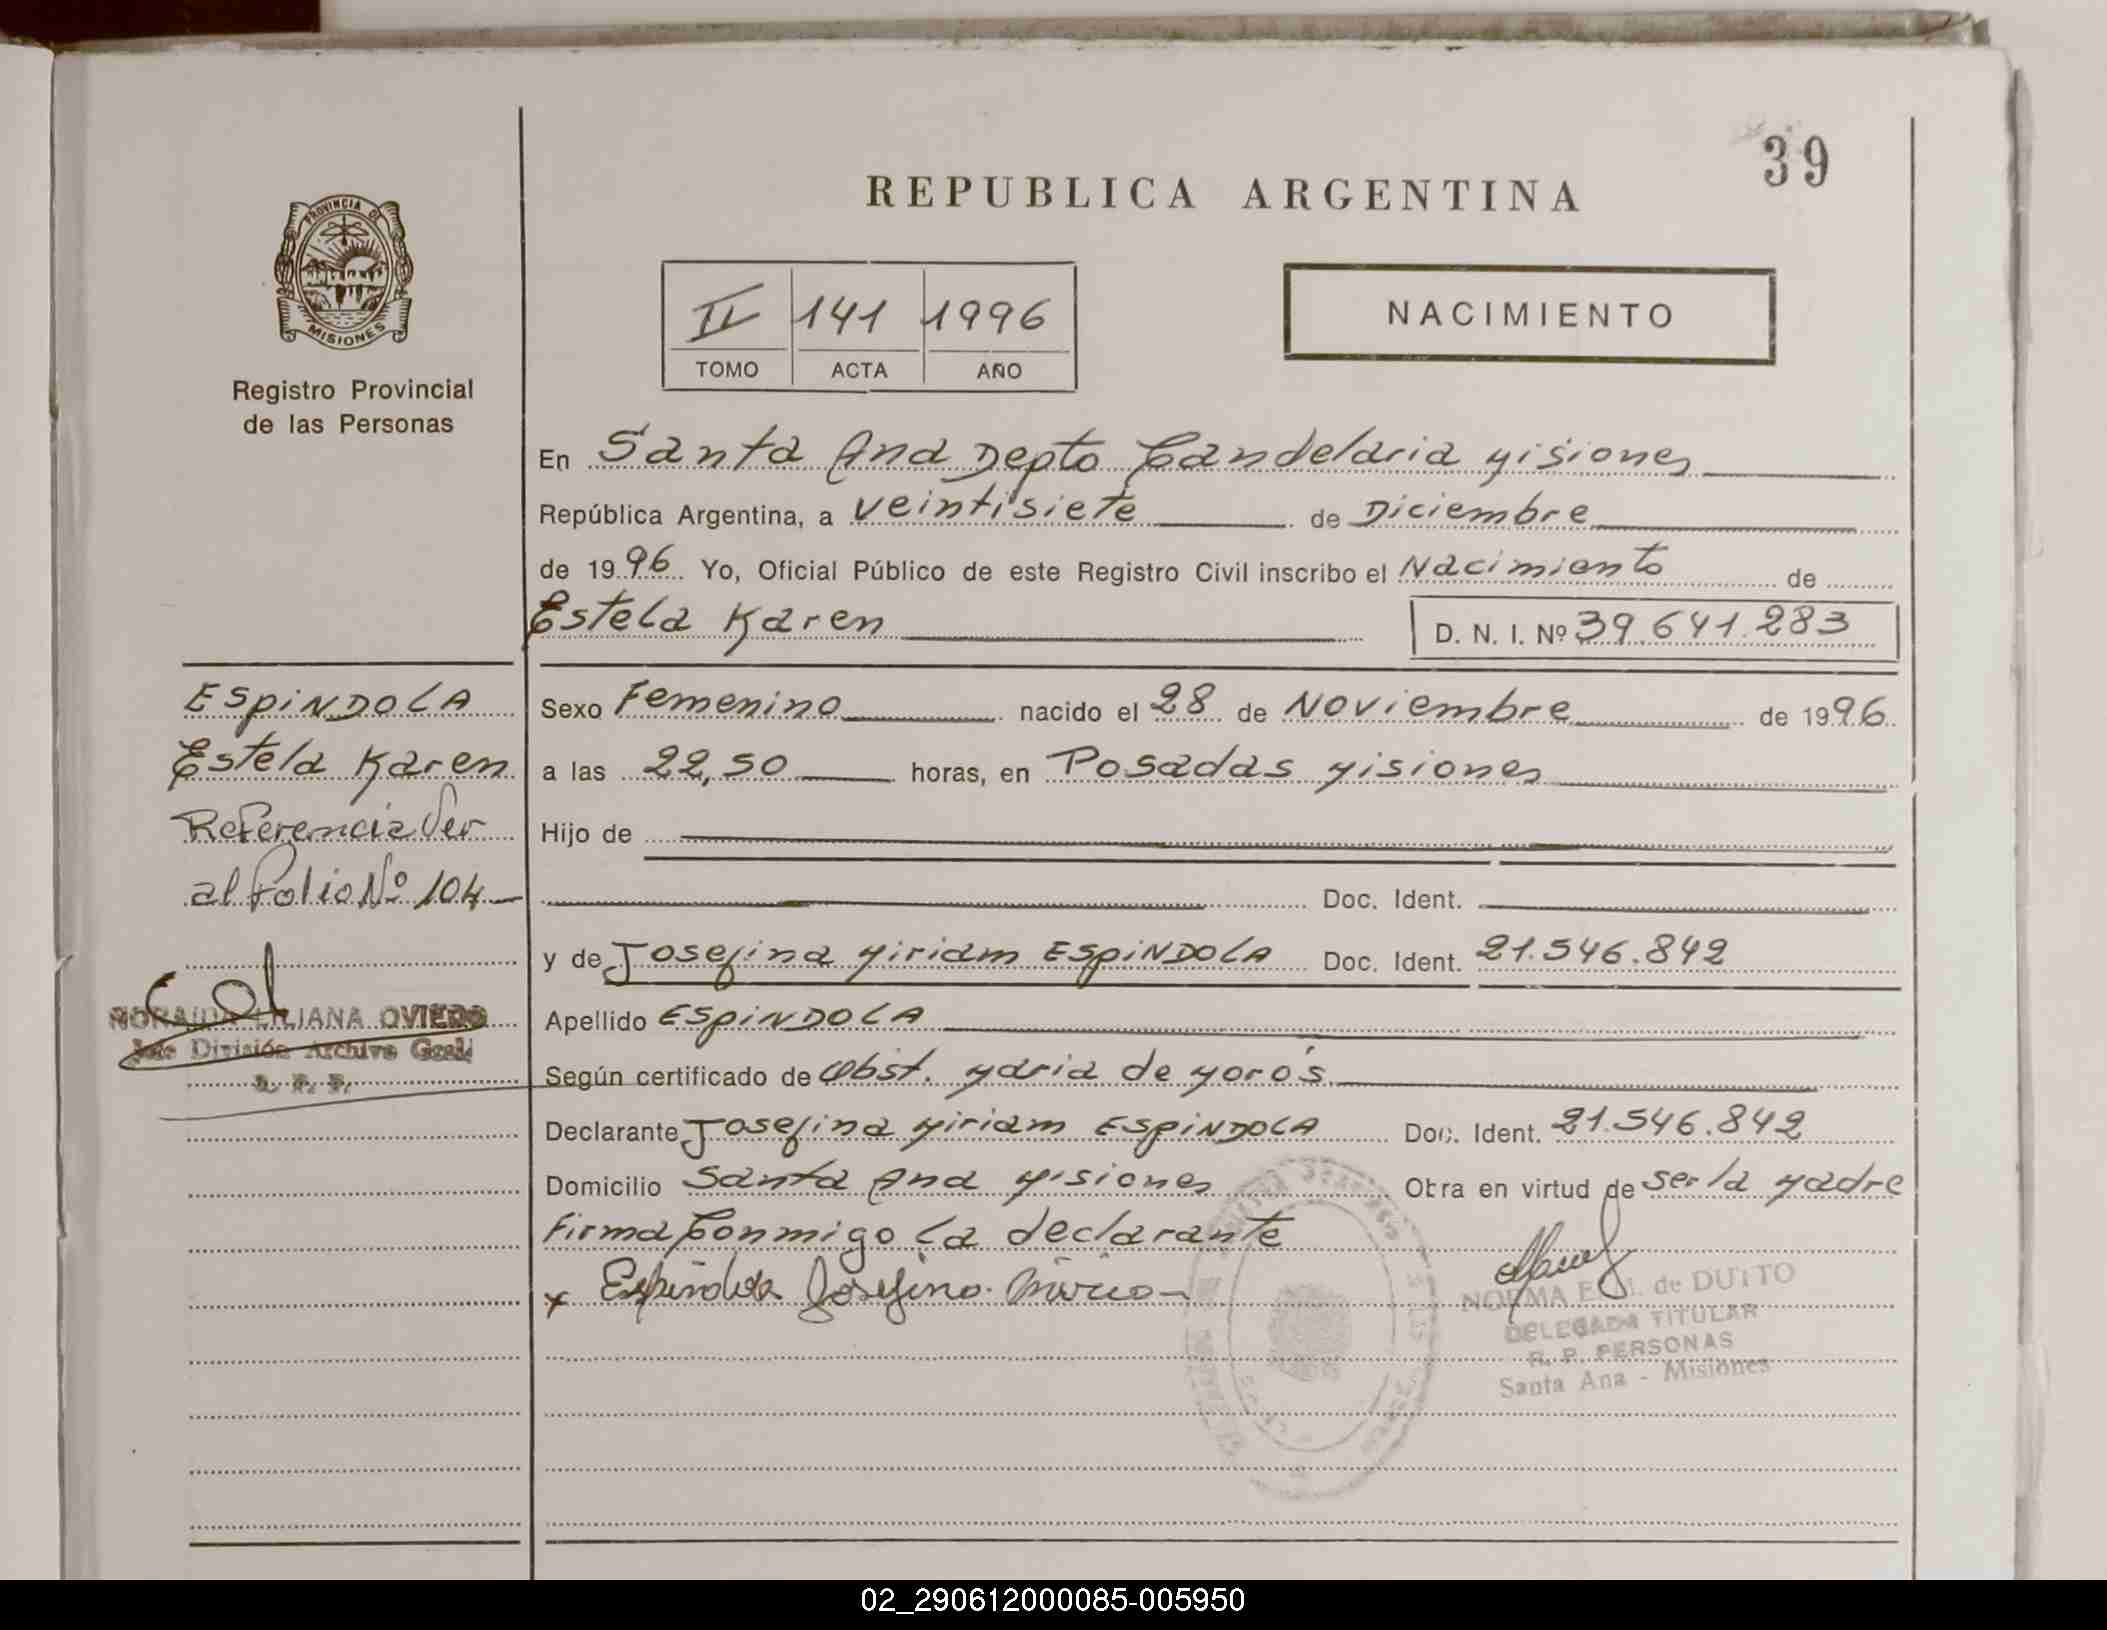 39
REPUBLICA ARGENTINA
PROVINCIA DE
MISIONES
Registro Provincial
de las Personas
II 141 1996
TOMO ACTA AÑO
NACIMIENTO
En Santa Ana Depto Candelaria Misiones
República Argentina, a veintisiete de Diciembre
de 1996 Yo, Oficial Público de este Registro Civil inscribo el Nacimiento de
Estela Karen D. N. I. Nº 39.641.283
ESPINDOLA
Estela Karen
Referencia Ver
al Folio Nº 104
NORAIDA LILIANA OVIEDO
Jefe División Archivo Gral.
Sexo Femenino nacido el 28 de Noviembre de 1996
a las 22,50 horas, en Posadas Misiones
Hijo de
Doc. Ident.
y de Josefina Miriam ESPINDOLA Doc. Ident. 21.546.842
Apellido ESPINDOLA
Según certificado de Obst. Maria de Morós
Declarante Josefina Miriam ESPINDOLA Doc. Ident. 21.546.842
Domicilio Santa Ana Misiones Obra en virtud de ser la Madre
Firma Conmigo la declarante
x Espindola Josefina Miriam
NORMA E. de DUTTO
DELEGADA TITULAR
R. P. PERSONAS
Santa Ana - Misiones
02_290612000085-005950